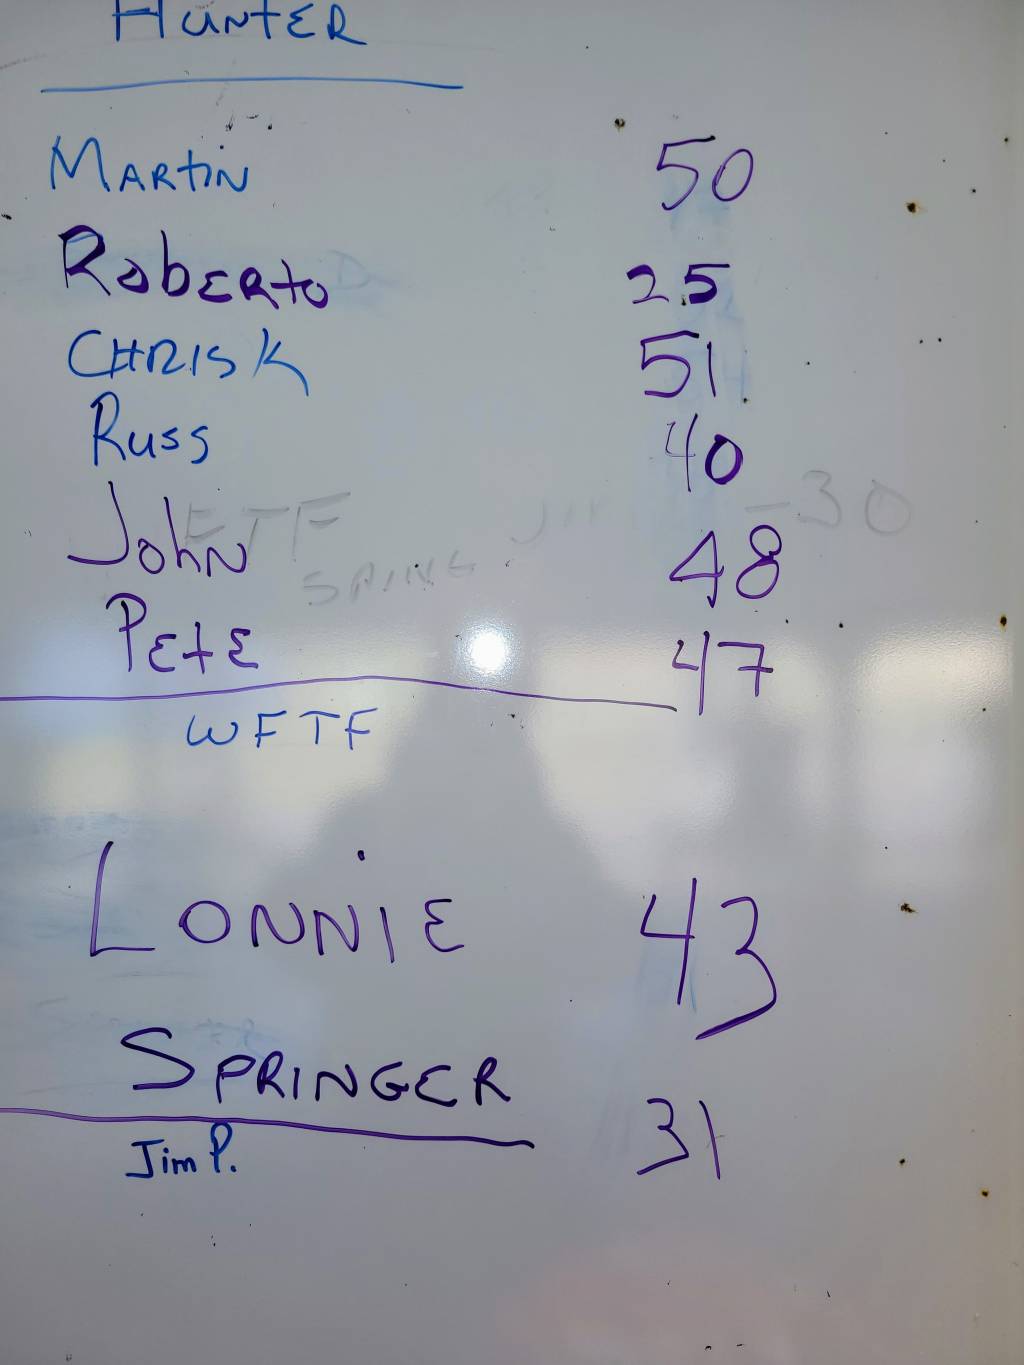 HUNTER
MARTIN 50
ROBERTO 25
CHRIS K 51
RUSS 40
JOHN 48
PETE 47
WFTF
LONNIE 43
SPRINGER
Jim P. 31